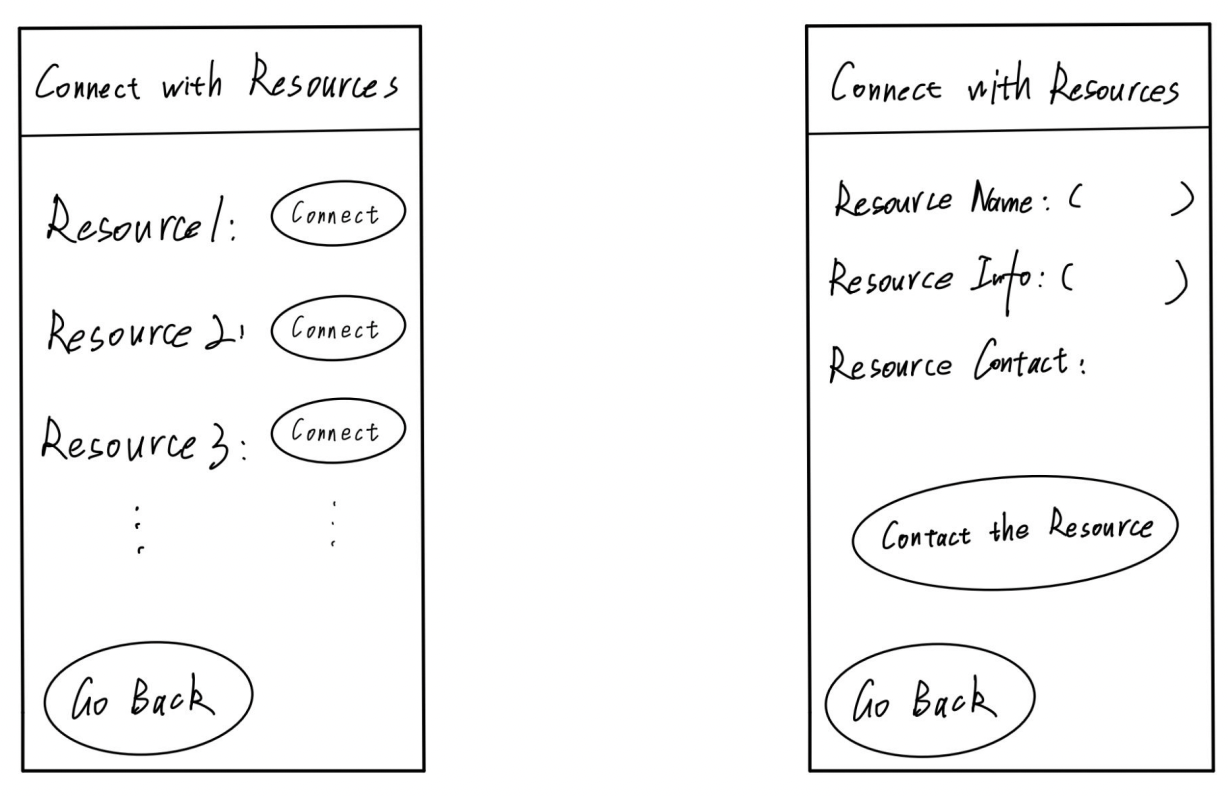 Connect with Resources
Resource 1: Connect
Resource 2: Connect
Resource 3: Connect
Go Back
Connect with Resources
Resource Name: ( )
Resource Info: ( )
Resource Contact:
Contact the Resource
Go Back